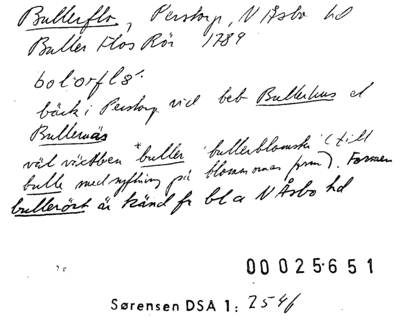 Bullerflo, Perstorp, N Åsbo hd
Buller Flos Rör 1789
bolorflɷ.
bäck i Perstorp vid beb Bullerhus el
Bullernäs
väl växtben *buller 'bullerblomster' (till
bulle med syftning på blommornas form). Formen
bullerört är känd fr bl a N Åsbo hd
00025651
Sørensen DSA 1: 2546